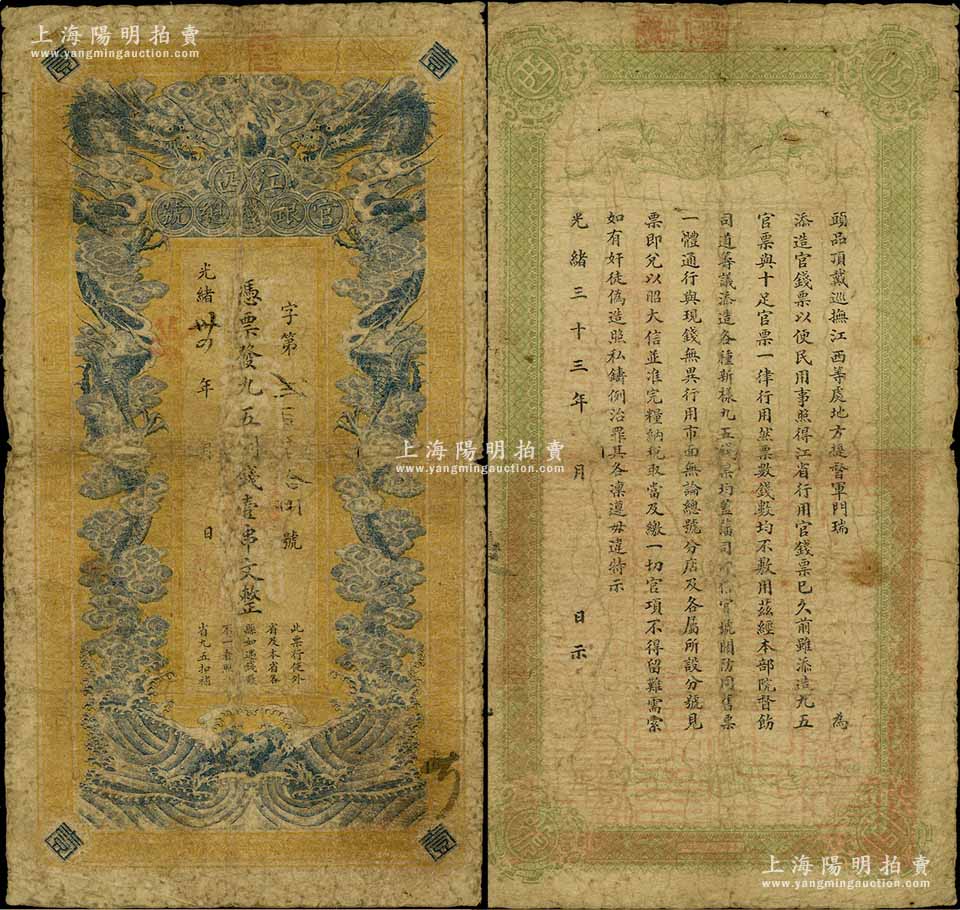 上海陽明拍賣
www.yangmingauction.com
壹
壹
江西
官銀錢總號
字第
號
憑票發九五制錢壹串文整
光緒卅四年 月 日
此票行使外
省及本省各
縣如遇錢數
不一者照
省九五扣補
壹
壹
上海陽明拍賣
www.yangmingauction.com
上海陽明拍賣
www.yangmingauction.com
頭品頂戴巡撫江西等處地方提督軍門瑞 為
添造官錢票以便民用事照得江省行用官錢票已久前雖添造九五
官票與十足官票一律行用然票數錢數均不敷用茲經本部院督飭
司道籌議添造各種新樣九五錢票均蓋藩司官號關防同舊票
一體通行與現錢無異行用市面無論總號分店及各屬所設分號見
票即兌以昭大信並准完糧納稅取當及繳一切官項不得留難需索
如有奸徒偽造照私鑄例治罪其各凜遵毋違特示
光緒三十三年 月 日示
上海陽明拍賣
www.yangmingauction.com